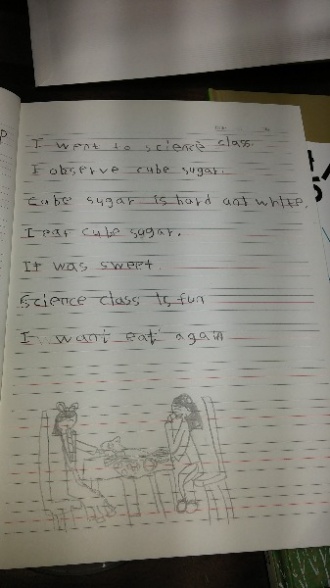 I went to science class.
I observe cube sugar.
Cube sugar is hard ant white.
I eat cube sugar.
It was sweet.
Science class is fun
I want eat again